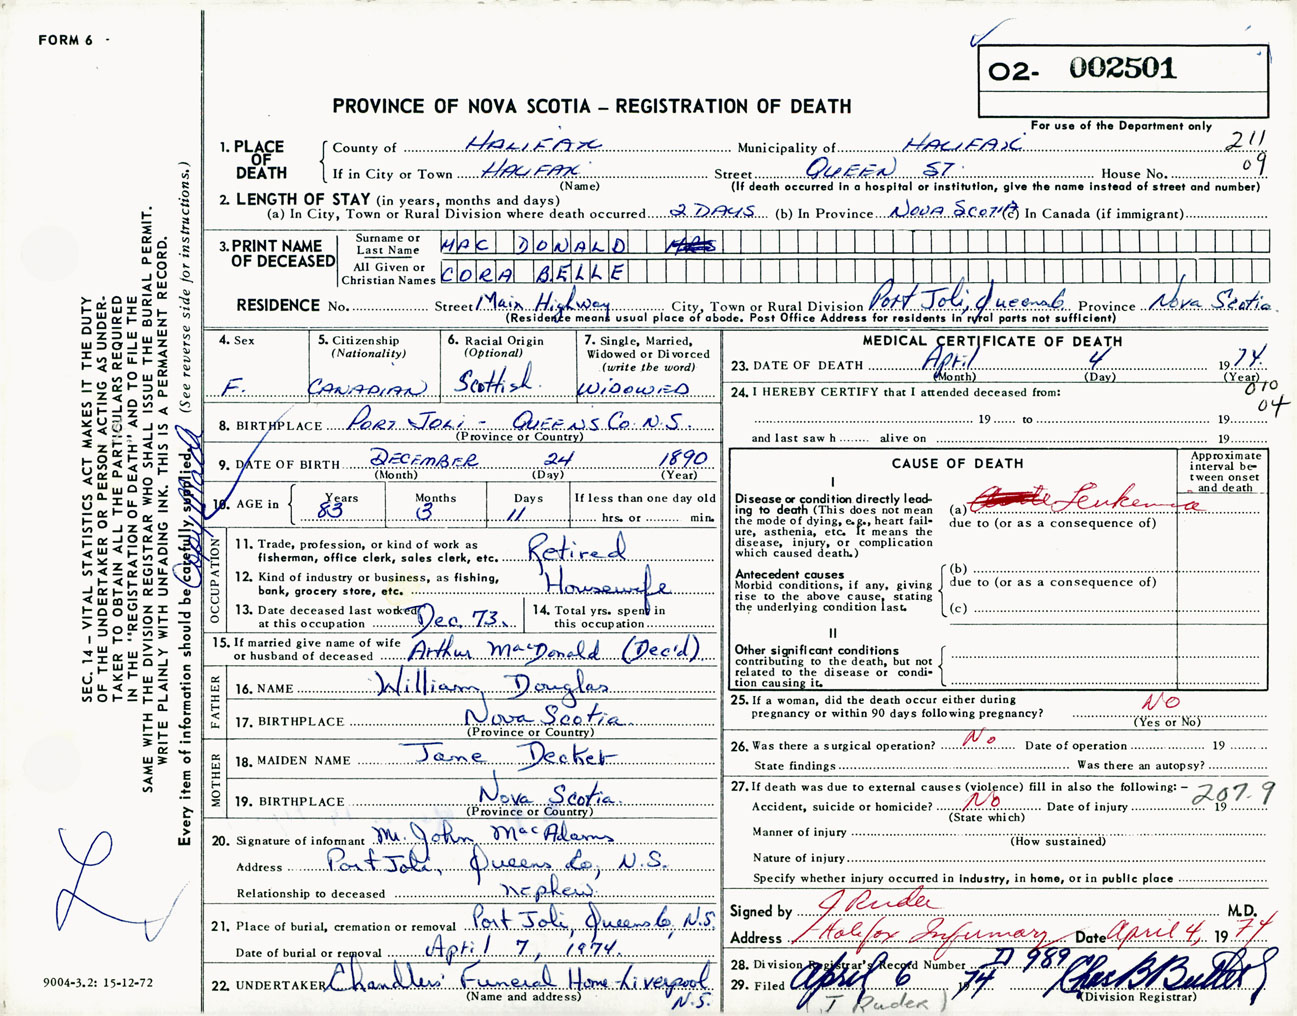 FORM 6
02- 002501
PROVINCE OF NOVA SCOTIA – REGISTRATION OF DEATH
For use of the Department only
211
09
1. PLACE OF DEATH
County of HALIFAX Municipality of HALIFAX
If in City or Town HALIFAX Street QUEEN ST. House No.
(Name) (If death occurred in a hospital or institution, give the name instead of street and number)
2. LENGTH OF STAY (in years, months and days)
(a) In City, Town or Rural Division where death occurred 2 DAYS (b) In Province NOVA SCOTIA (c) In Canada (if immigrant)
3. PRINT NAME OF DECEASED
Surname or Last Name MAC DONALD
All Given or Christian Names CORA BELLE
RESIDENCE No. Street Main Highway City, Town or Rural Division Port Joli, Queens Co Province Nova Scotia
(Residence means usual place of abode. Post Office Address for residents in rural parts not sufficient)
4. Sex
F.
5. Citizenship
(Nationality)
CANADIAN
6. Racial Origin
(Optional)
Scottish
7. Single, Married,
Widowed or Divorced
(write the word)
WIDOWED
8. BIRTHPLACE PORT JOLI - QUEENS Co. N.S.
(Province or Country)
9. DATE OF BIRTH DECEMBER 24 1890
(Month) (Day) (Year)
10. AGE in
Years Months Days If less than one day old
83 3 11 hrs. or min.
OCCUPATION
11. Trade, profession, or kind of work as
fisherman, office clerk, sales clerk, etc. Retired
12. Kind of industry or business, as fishing,
bank, grocery store, etc. Housewife
13. Date deceased last worked
at this occupation Dec. 73.
14. Total yrs. spent in
this occupation
15. If married give name of wife
or husband of deceased Arthur MacDonald (Dec'd)
FATHER
16. NAME William Douglas
17. BIRTHPLACE Nova Scotia
(Province or Country)
MOTHER
18. MAIDEN NAME Jane Decker
19. BIRTHPLACE Nova Scotia.
(Province or Country)
20. Signature of informant Mr. John MacAdams
Address Port Joli, Queens Co, N.S.
Relationship to deceased nephew
21. Place of burial, cremation or removal Port Joli, Queens Co, N.S.
Date of burial or removal April 7, 1974.
22. UNDERTAKER Chandlers' Funeral Home - Liverpool
(Name and address) N.S.
MEDICAL CERTIFICATE OF DEATH
23. DATE OF DEATH April 4 1974.
(Month) (Day) (Year)
010
04
24. I HEREBY CERTIFY that I attended deceased from:
19 to 19
and last saw h alive on 19
CAUSE OF DEATH
Approximate
interval be-
tween onset
and death
I
Disease or condition directly lead-
ing to death (This does not mean
the mode of dying, e.g., heart fail-
ure, asthenia, etc. It means the
disease, injury, or complication
which caused death.)
(a) Leukemia
due to (or as a consequence of)
Antecedent causes
Morbid conditions, if any, giving
rise to the above cause, stating
the underlying condition last.
(b)
due to (or as a consequence of)
(c)
II
Other significant conditions
contributing to the death, but not
related to the disease or condi-
tion causing it.
25. If a woman, did the death occur either during
pregnancy or within 90 days following pregnancy? NO
(Yes or No)
26. Was there a surgical operation? No Date of operation 19
State findings Was there an autopsy?
27. If death was due to external causes (violence) fill in also the following: –
207.9
Accident, suicide or homicide? No Date of injury 19
(State which)
Manner of injury
(How sustained)
Nature of injury
Specify whether injury occurred in industry, in home, or in public place
Signed by J Ruder M.D.
Address Halifax Infirmary Date April 4, 1974
28. Division Registrar's Record Number D 989
29. Filed April 6 1974
(Division Registrar)
(J Ruder)
SEC. 14 – VITAL STATISTICS ACT MAKES IT THE DUTY
OF THE UNDERTAKER OR PERSON ACTING AS UNDER-
TAKER TO OBTAIN ALL THE PARTICULARS REQUIRED
IN THE "REGISTRATION OF DEATH" AND TO FILE THE
SAME WITH THE DIVISION REGISTRAR WHO SHALL ISSUE THE BURIAL PERMIT.
WRITE PLAINLY WITH UNFADING INK. THIS IS A PERMANENT RECORD.
Every item of information should be carefully supplied. (See reverse side for instructions.)
9004-3.2: 15-12-72